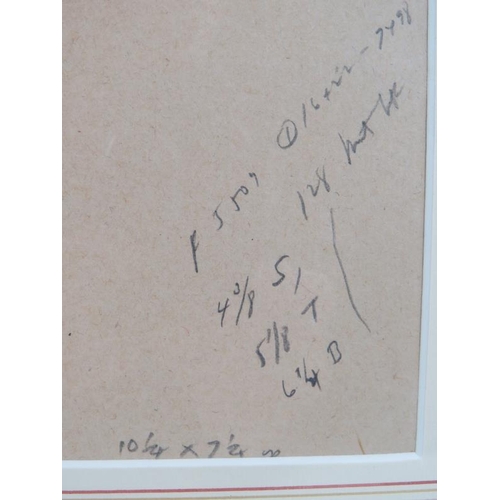 ① 16 x 22 - 7498
F 5509 128 mat
4 3/8 S
5 1/8 T
6 1/4 B
10 1/4 x 7 1/4